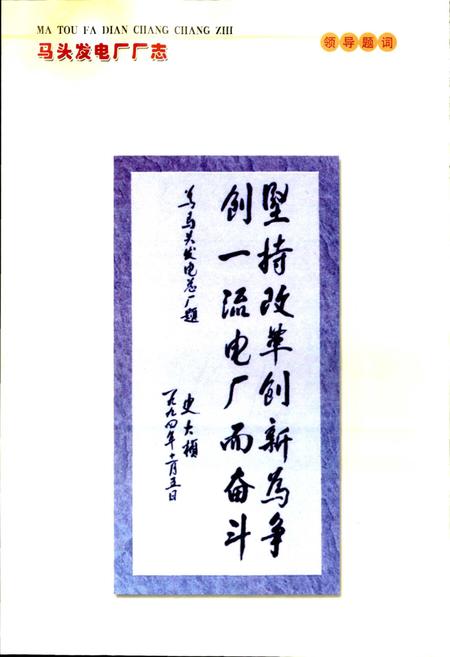 MA TOU FA DIAN CHANG CHANG ZHI
马头发电厂厂志
领导题词
坚持改革创新为争
创一流电厂而奋斗
为马头发电总厂题
史大桢
一九九四年十一月五日